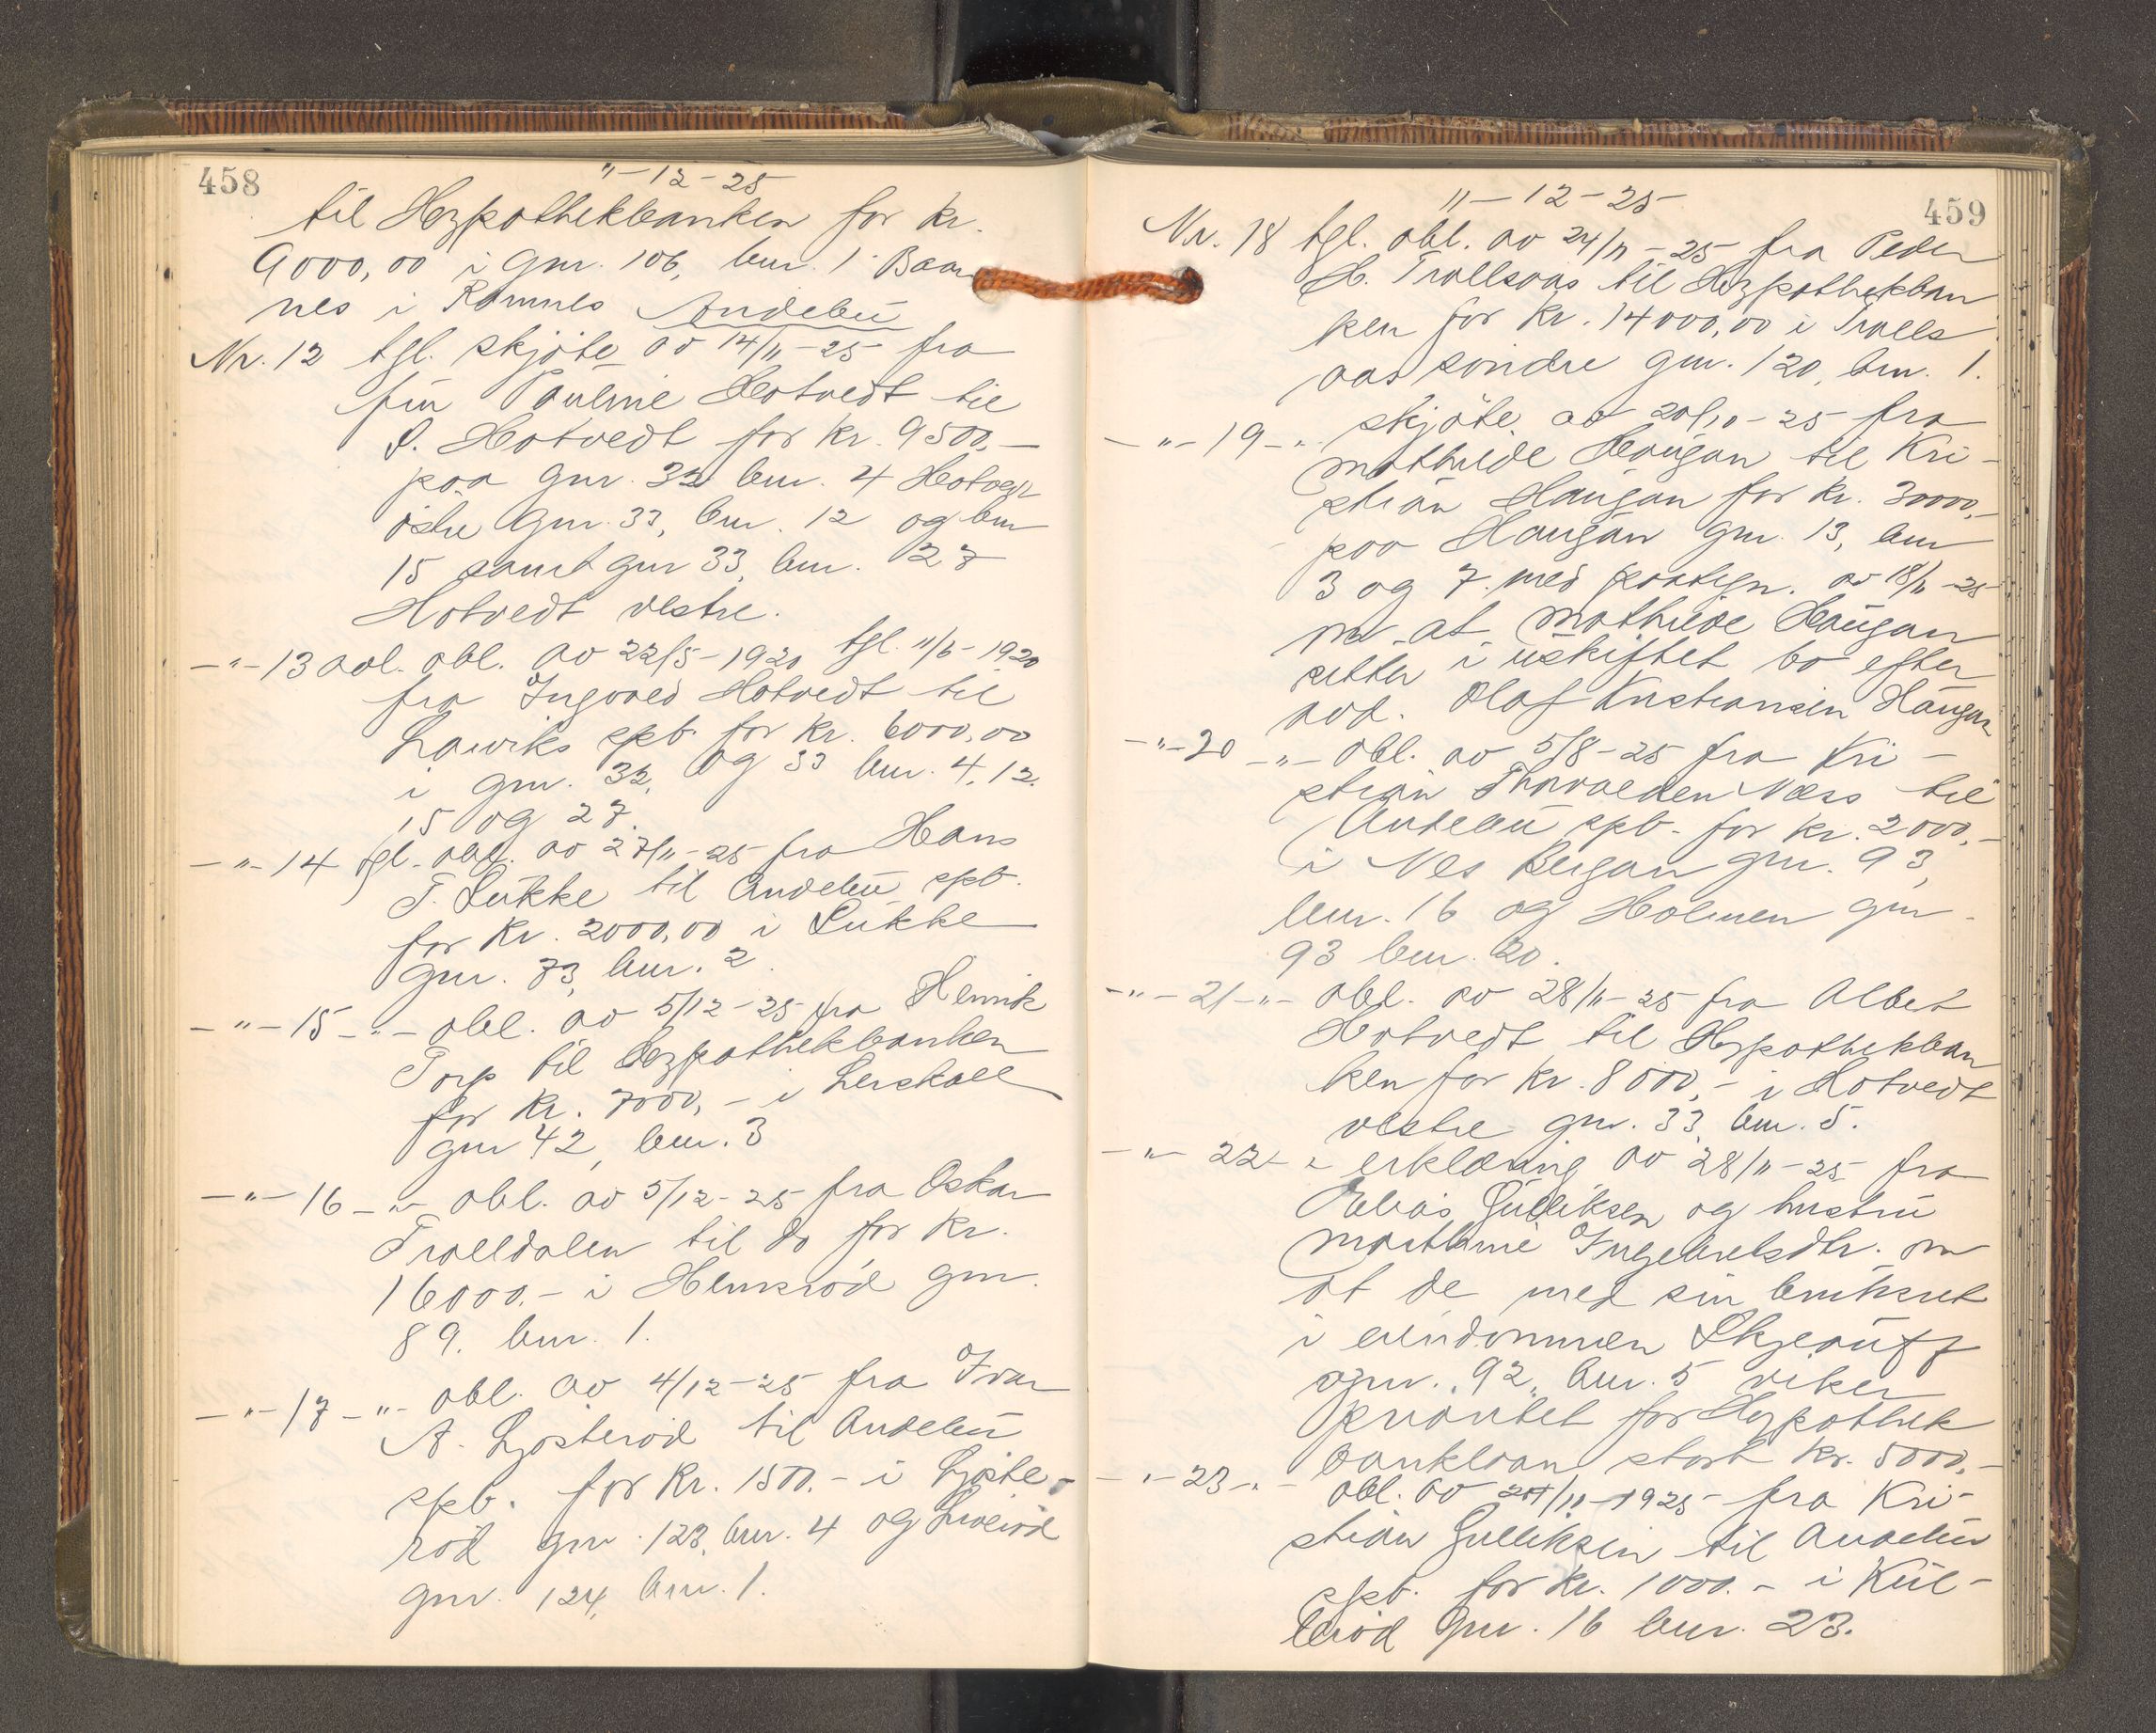 458
11-12-25
til Hypothekbanken for kr.
9000,00 i gnr. 106, bnr. 1 Baar
nes i Ramnes Andebu
Nr. 12 tgl. skjöte av 14/11-25 fra
fru Pauline Hotvedt til
S. Hotvedt for kr. 9500,-
paa gnr. 32 bnr. 4 Hotvedt
östre gnr. 33, bnr. 12 og bnr
15 samt gnr 33, bnr. 27
Hotvedt vestre.
-"-13 avl. obl. av 22/5-1920 tgl. 11/6-1920
fra Ingvald Hotvedt til
Larviks spb. for kr. 6000,00
i gnr. 32, og 33 bnr. 4, 12.
15 og 27.
-"-14 tgl. obl. av 27/11-25 fra Hans
T. Lukke til Andebu spb.
for kr. 2000,00 i Lukke
gnr. 73, bnr. 2
-"-15-"- obl. av 5/12-25 fra Henrik
Torp til Hypothekbanken
for kr. 7000,- i Lerskall
gnr 42, bnr. 3
-"-16-"- obl. av 5/12-25 fra Oskar
Trolldalen til do for kr.
16000.- i Hemsröd gnr.
89. bnr. 1.
-"-17-"- obl. av 4/12-25 fra Ivar
A. Ljosteröd til Andebu
spb. for kr. 1500.- i Ljoste-
röd gnr. 123, bnr. 4 og
gnr. 124, bnr. 1.
459
11-12-25
Nr. 18 tgl. obl. av 24/11-25 fra Peder
H. Trollsaas til Hypothekban
ken for kr. 14000,00 i Trolls
aas söndre gnr. 120, bnr. 1.
-"-19-"- skjöte av 20/10-25 fra
Mathilde Haugan til Kri-
stian Haugan for kr. 30000,-
paa Haugan gnr. 13, bnr
3 og 7. med paategn. av 18/11-25
om at Mathilde Haugan
sitter i uskiftet bo efter
avd. Olaf Kristiansen Haugan
-"-20-"- obl. av 5/8-25 fra Kri-
stian Thorvaldsen Næss til
Andebu spb. for kr. 2000,-
i Nes Bergan gnr. 93,
bnr. 16 og Holmen gnr.
93 bnr. 20.
-"-21-"- obl. av 28/11-25 fra Albert
Hotvedt til Hypothekban
ken for kr. 8000,- i Hotvedt
vestre gnr. 33, bnr. 5.
-"-22-"- erklæring av 28/11-25 fra
Gulliksen og hustru
Marthine Ingebretsdtr. om
at de med sin bruksret
i eiendommen Skjeauff
gnr. 92, bnr. 5 viker
prioritet for Hypothek
banklaan stort kr. 5000,-
-"-23-"- obl. av /11-1925 fra Kri-
stian Gulliksen til Andebu
spb. for kr. 1000.- i Kul-
leröd gnr. 16 bnr. 23.